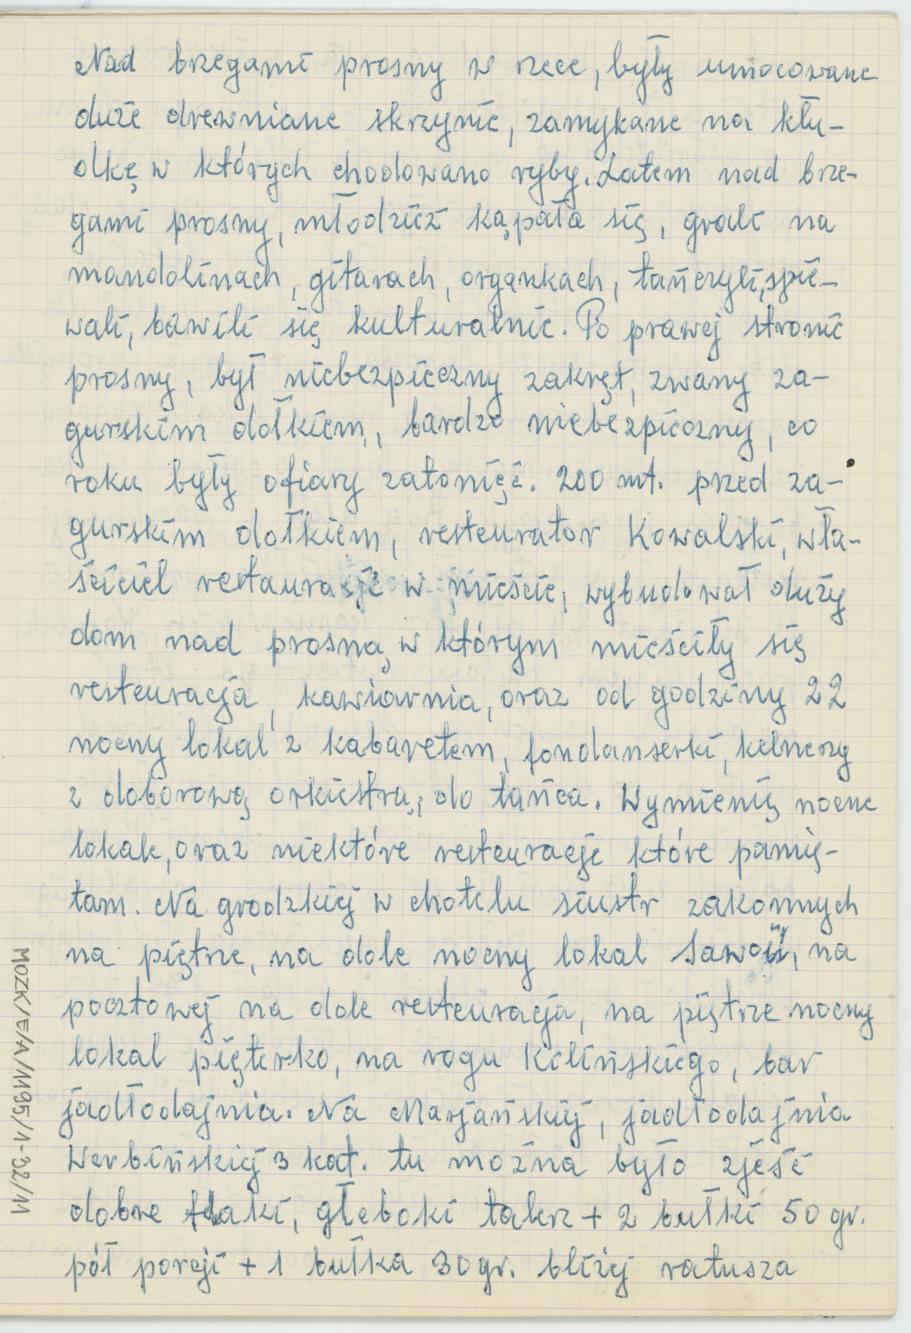 Nad brzegami prosny w rzece, były umocowane
duże drewniane skrzynie, zamykane na kłu-
dkę w których chodowano ryby. Latem nad brze-
gami prosny, młodzież kąpała się, grali na
mandolinach, gitarach, organkach, tańczyli, śpie-
wali, bawili się kulturalnie. Po prawej stronie
prosny, był niebezpieczny zakręt, zwany za-
gurskim dołkiem, bardzo niebezpieczny, co
roku były ofiary zatonięć. 200 mt. przed za-
gurskim dołkiem, resteurator Kowalski, wła-
ściciel restauracje w mieście, wybudował duży
dom nad prosną w którym mieściły się
resteuracja, kawiarnia, oraz od godziny 22
nocny lokal z kabaretem, fondanserki, kelnerzy
z doborową orkiestrą, do tańca. Wymienię nocne
lokale, oraz niektóre resteuracje które pamię-
tam. Na grodzkiej w chotelu siustr zakonnych
na piętrze, na dole nocny lokal Sawoii, na
pocztowej na dole resteuracja, na piętrze nocny
lokal pięterko, na rogu Kilińskiego, bar
jadłodajnia. Na Marjańskiej, jadłodajnia
Werbińskiej 3 kat. tu można było zjeść
dobre flaki, głeboki talerz + 2 bułki 50 gr.
pół porcji + 1 bułka 30 gr. bliżej ratusza
MOZK/E/A/1195/1-32/11